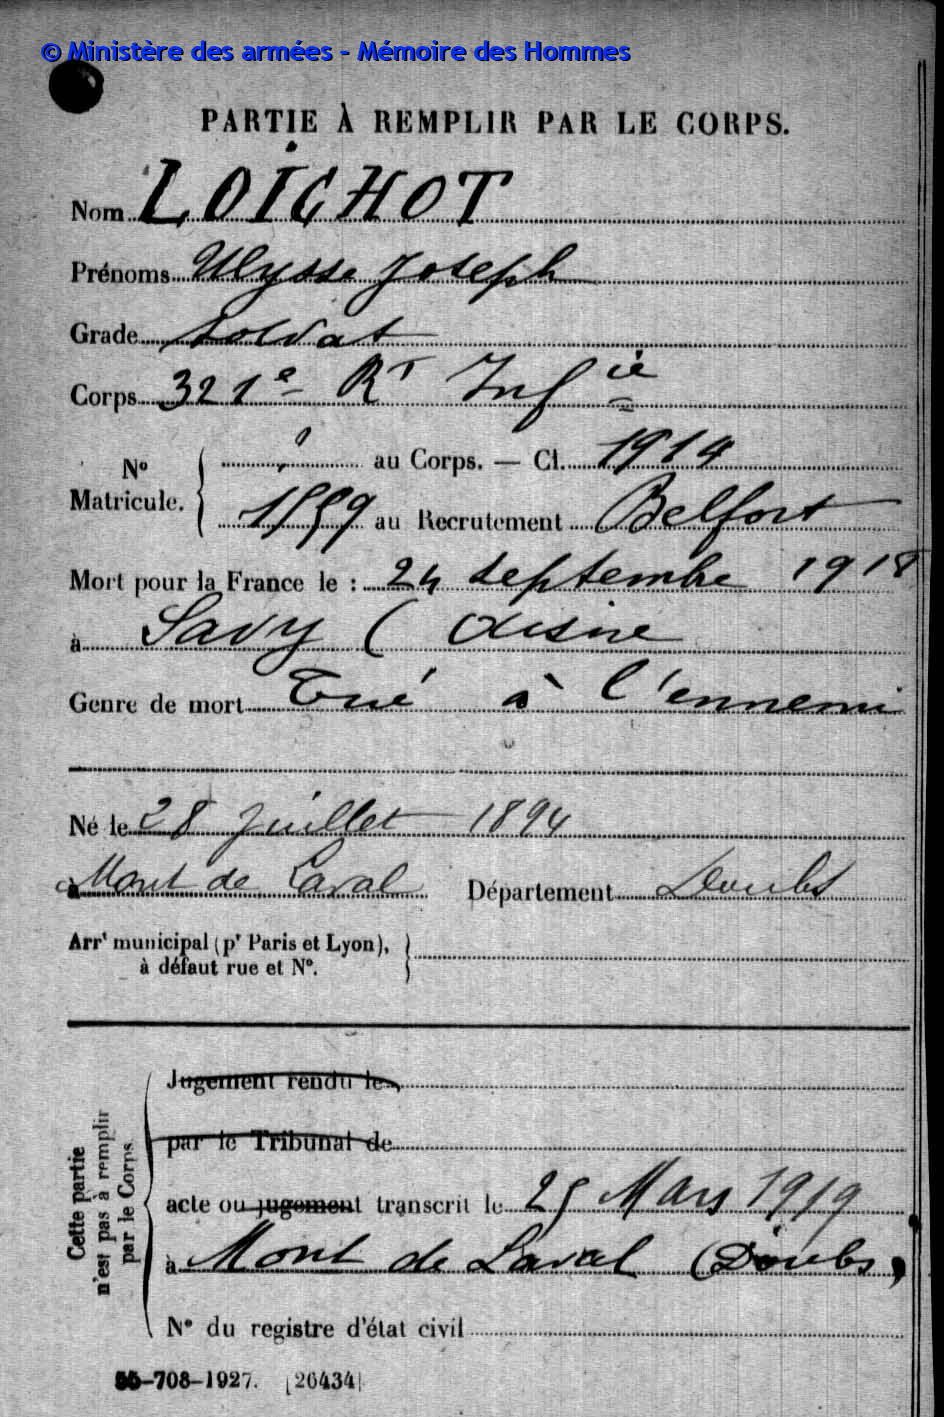 © Ministère des armées - Mémoire des Hommes
PARTIE À REMPLIR PAR LE CORPS.
Nom LOICHOT
Prénoms Ulysse Joseph
Grade soldat
Corps 321e Rt Infie
No Matricule. { ? au Corps. — Cl. 1914
1559 au Recrutement Belfort
Mort pour la France le : 24 septembre 1918
à Savy ( Aisne
Genre de mort Tué à l'ennemi
Né le 28 Juillet 1894
à Mont de Laval Département Doubs
Arrt municipal (pr Paris et Lyon),
à défaut rue et No.
Cette partie n'est pas à remplir par le Corps.
Jugement rendu le
par le Tribunal de
acte ou jugement transcrit le 25 Mars 1919
à Mont de Laval (Doubs)
No du registre d'état civil
55-708-1927. [26434]